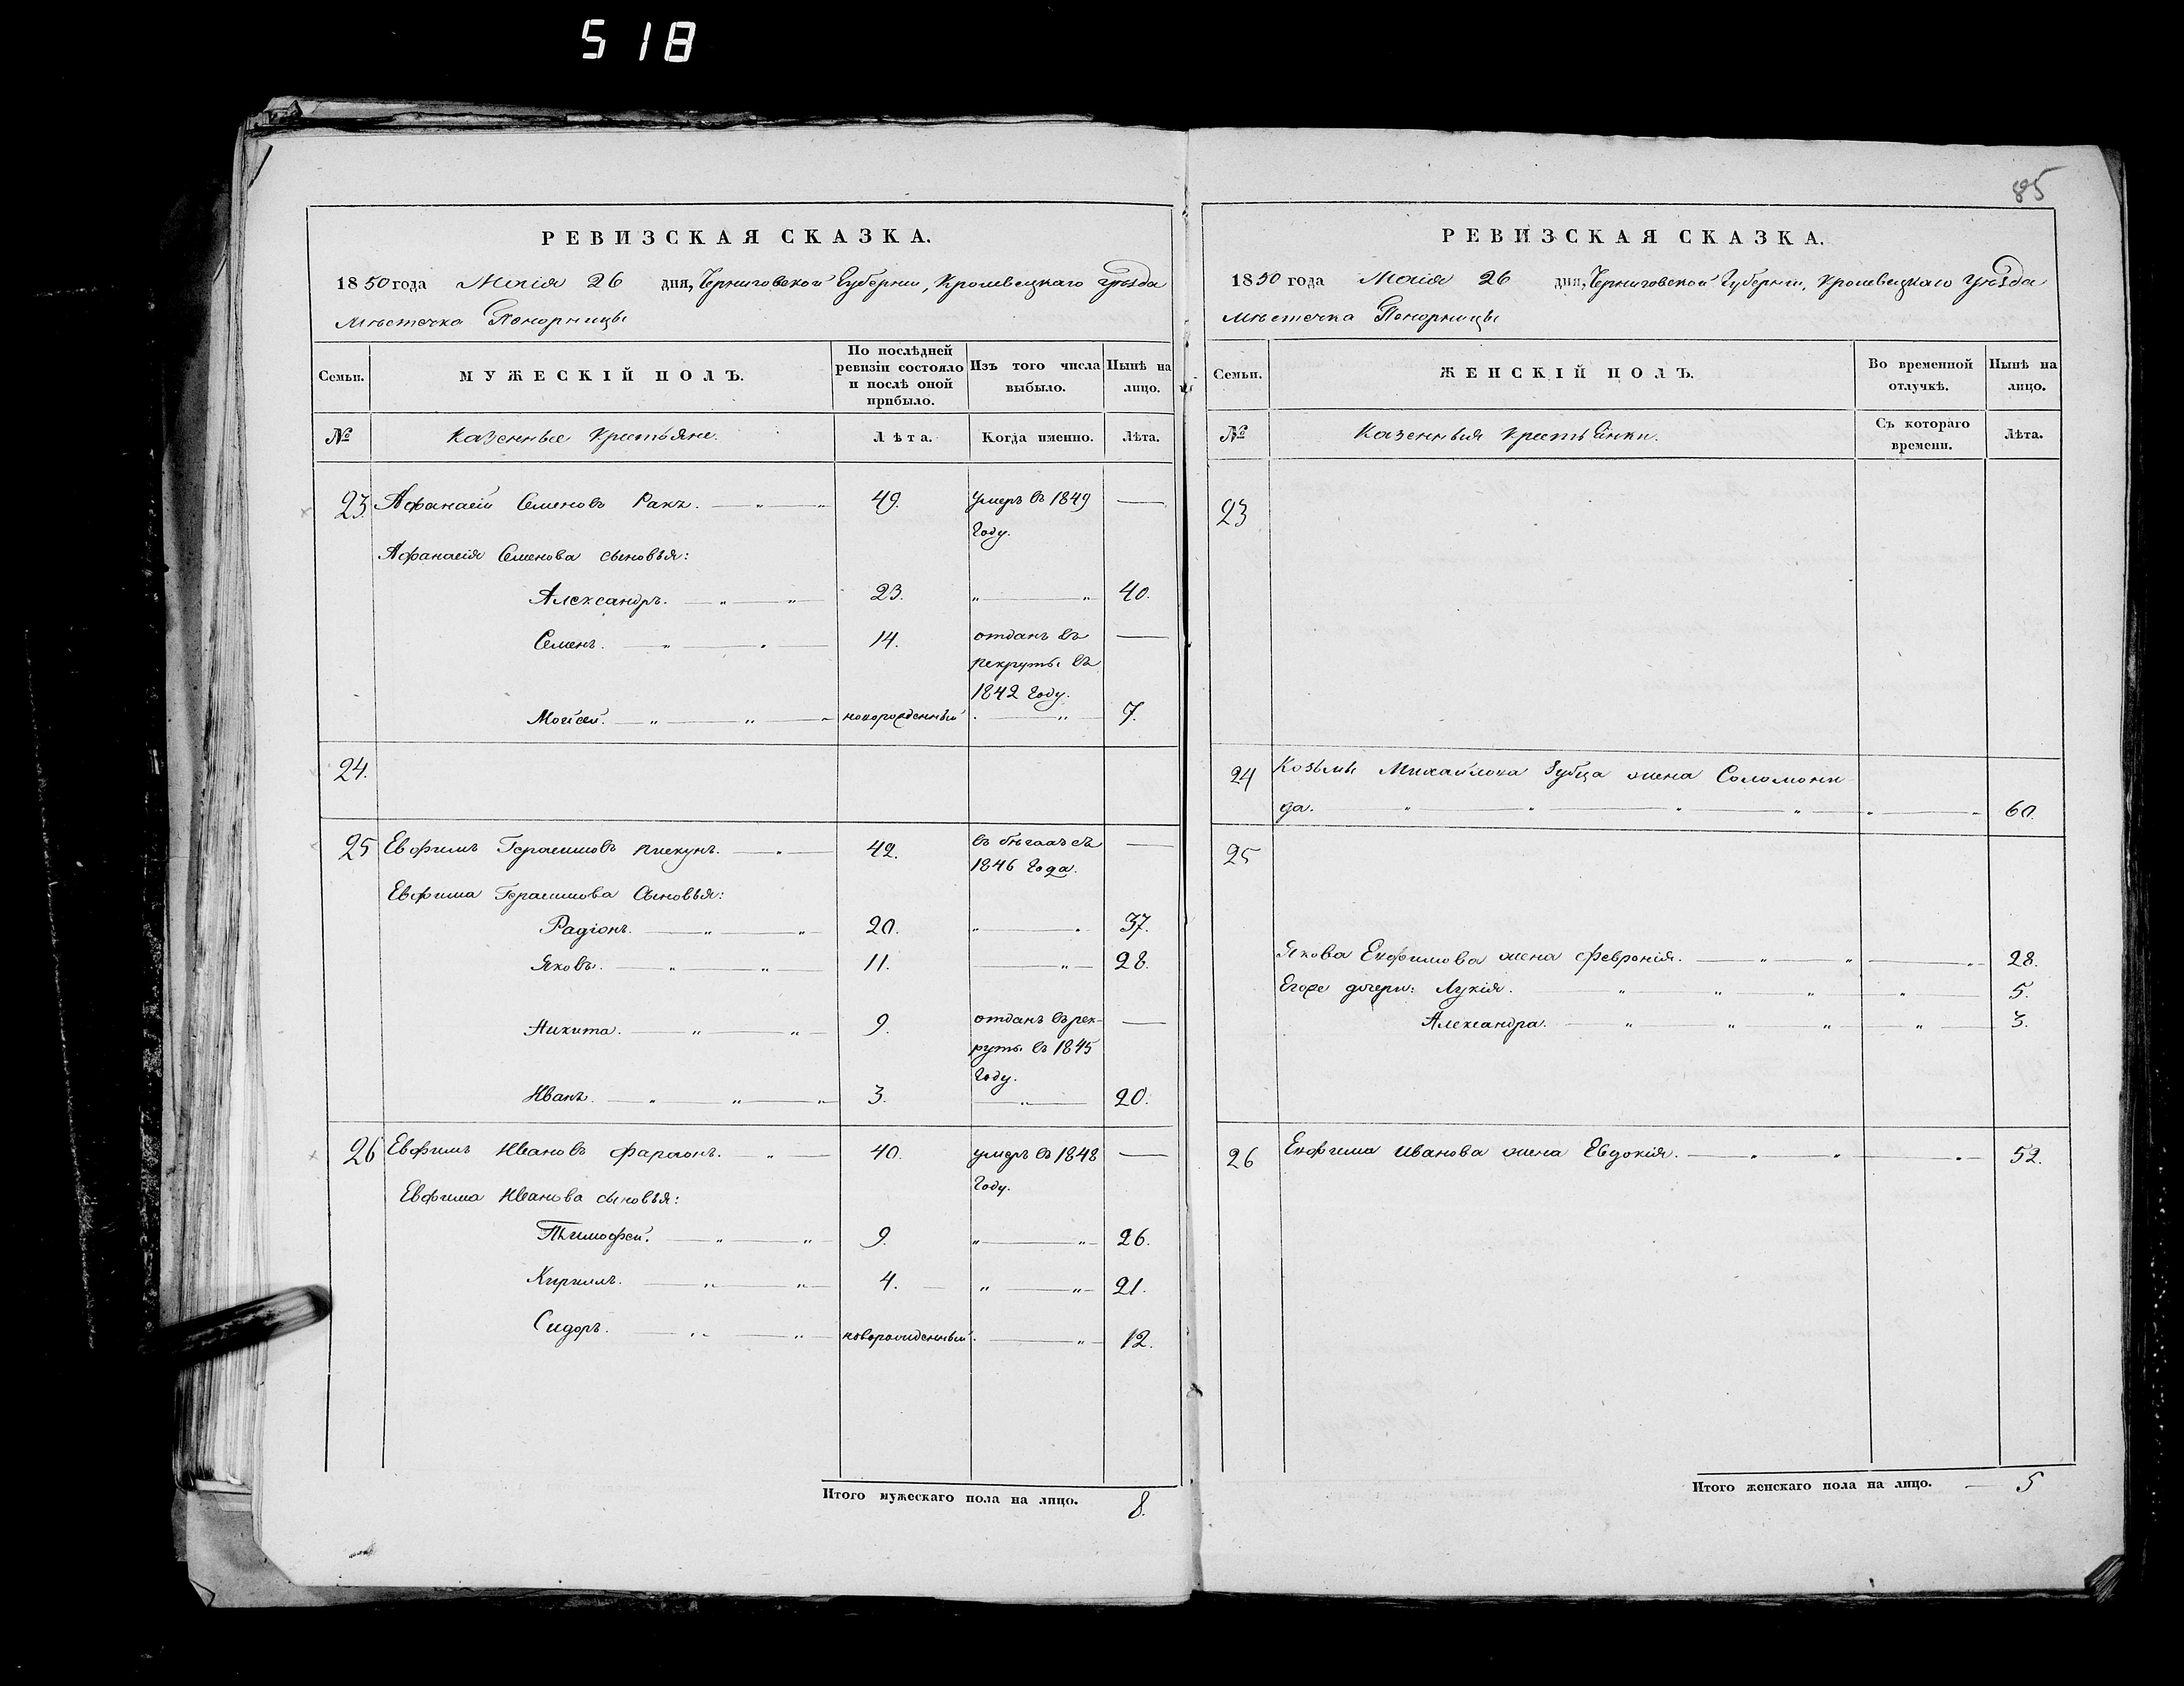 518
РЕВИЗСКАЯ СКАЗКА.
1850 года Маія 26 дня, Черниговской Губерніи, Кролевецкаго Уѣзда
Мѣстечка Понорницы
Семьи.
МУЖЕСКІЙ ПОЛЪ.
По послѣдней ревизіи состояло и послѣ оной прибыло.
Изъ того числа выбыло.
Нынѣ на лицо.
№
Казенные Крестьяне.
Лѣта.
Когда именно.
Лѣта.
23. Афанасій Семеновъ Ракъ. 49. умеръ въ 1849 —
Году.
Афанасія Семенова сыновья:
Александръ. 23. „ „ 40.
Семенъ. 14. отданъ въ —
рекруты въ
1842 Году.
Моисей. новорожденный „ 7.
24.
25 Евфимъ Герасимовъ Пискунъ. 42. въ бѣгахъ съ —
1846 Года.
Евфима Герасимова Сыновья:
Радіонъ. 20. „ „ 37.
Яковъ. 11. „ 28.
Никита. 9. отданъ въ рек- —
руты въ 1845
Году.
Иванъ. 3. „ 20.
26 Евфимъ Ивановъ Фараонъ. 40. умеръ въ 1848 —
Году.
Евфима Иванова сыновья:
Тимофей. 9. „ „ 26.
Кириллъ. 4. „ „ 21.
Сидоръ. новорожденный. „ 12.
Итого мужескаго пола на лицо. 8.
85
РЕВИЗСКАЯ СКАЗКА.
1850 года Маія 26 дня, Черниговской Губерніи, Кролевецкаго Уѣзда
Мѣстечка Понорницы
Семьи.
ЖЕНСКІЙ ПОЛЪ.
Во временной отлучкѣ.
Нынѣ на лицо.
№
Казенныя Крестьянки.
Съ котораго времени.
Лѣта.
23
24 Козьмы Михайлова Зубца жена Соломони-
да. 60.
25
Якова Евфимова жена Февронія. 28.
Егоже дочери: Лукія. 5.
Александра. 3.
26 Евфима Иванова жена Евдокія. 52.
Итого женскаго пола на лицо. — 5